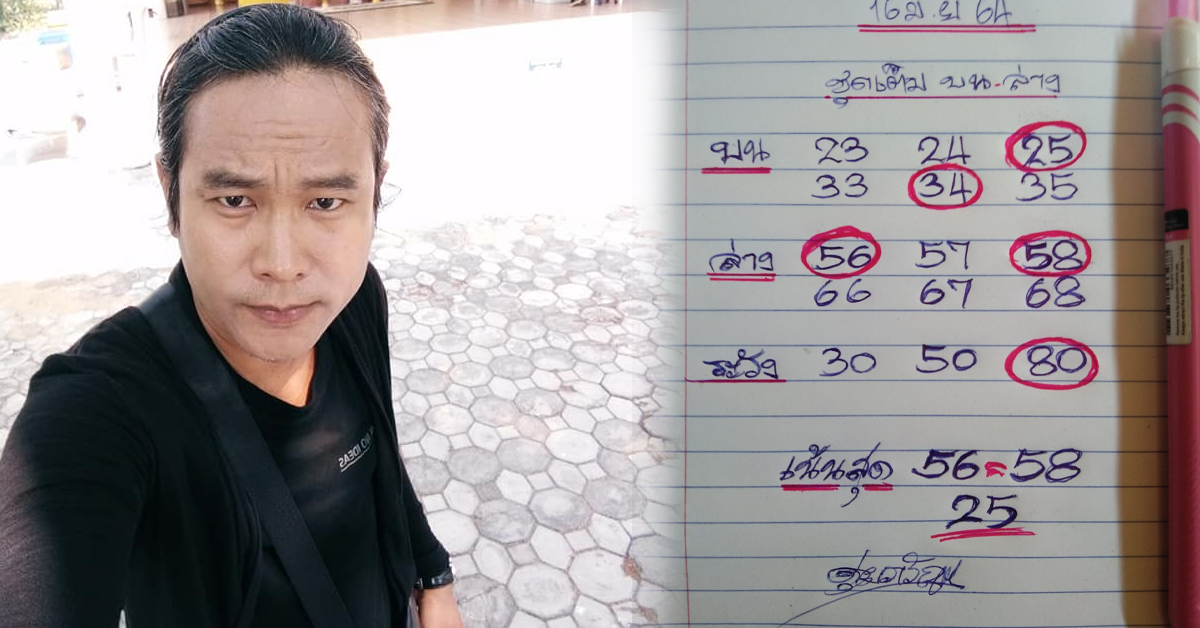 16 มิ.ย 64
ชุดเต็ม บน - ล่าง
บน 23 24 25
33 34 35
ล่าง 56 57 58
66 67 68
ระวัง 30 50 80
เน้นสุด 56 = 58
25
IDEAS